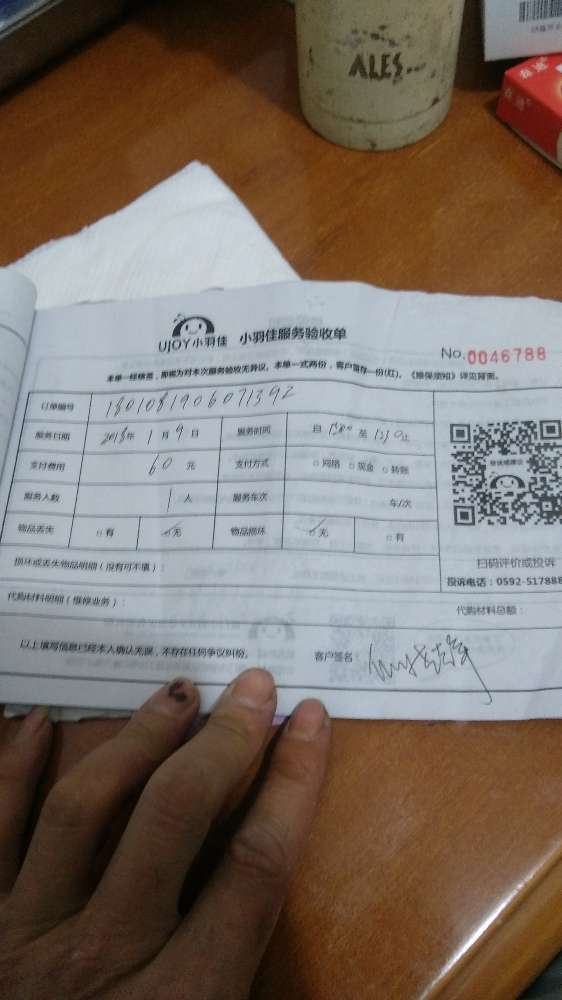 ALES
UJOY小羽佳 小羽佳服务验收单
No.0046788
本单一经填写，即视为对本次服务验收无异议。本单一式两份，客户留存一份(红)。《维保须知》详见背面。
订单编号 1801081906071392
服务日期 2018年1月9日 服务时间 自 至 1330止
支付费用 60元 支付方式 □网络 □现金 □转账
服务人数 1人 服务车次 车/次
物品丢失 □有 □无 物品损坏 □无 □有
扫码评价或投诉
损坏或丢失物品明细（没有可不填）：
投诉电话：0592-517888
代购材料明细（维修业务）：
代购材料总额：
以上填写信息已经本人确认无误，不存在任何争议纠纷。 客户签名：